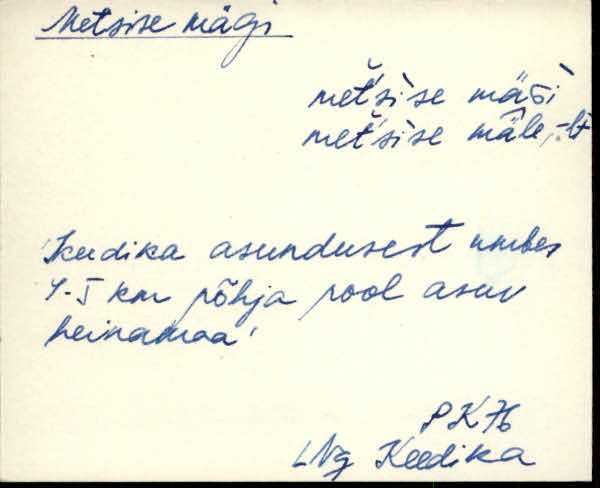 Metsise mägi
met̆'si̮se mäGi
met̆'si̮se mäle, -lt
'Keedika asundusest umbes
4-5 km põhja pool asuv
heinamaa'
PK76
LNg Keedika